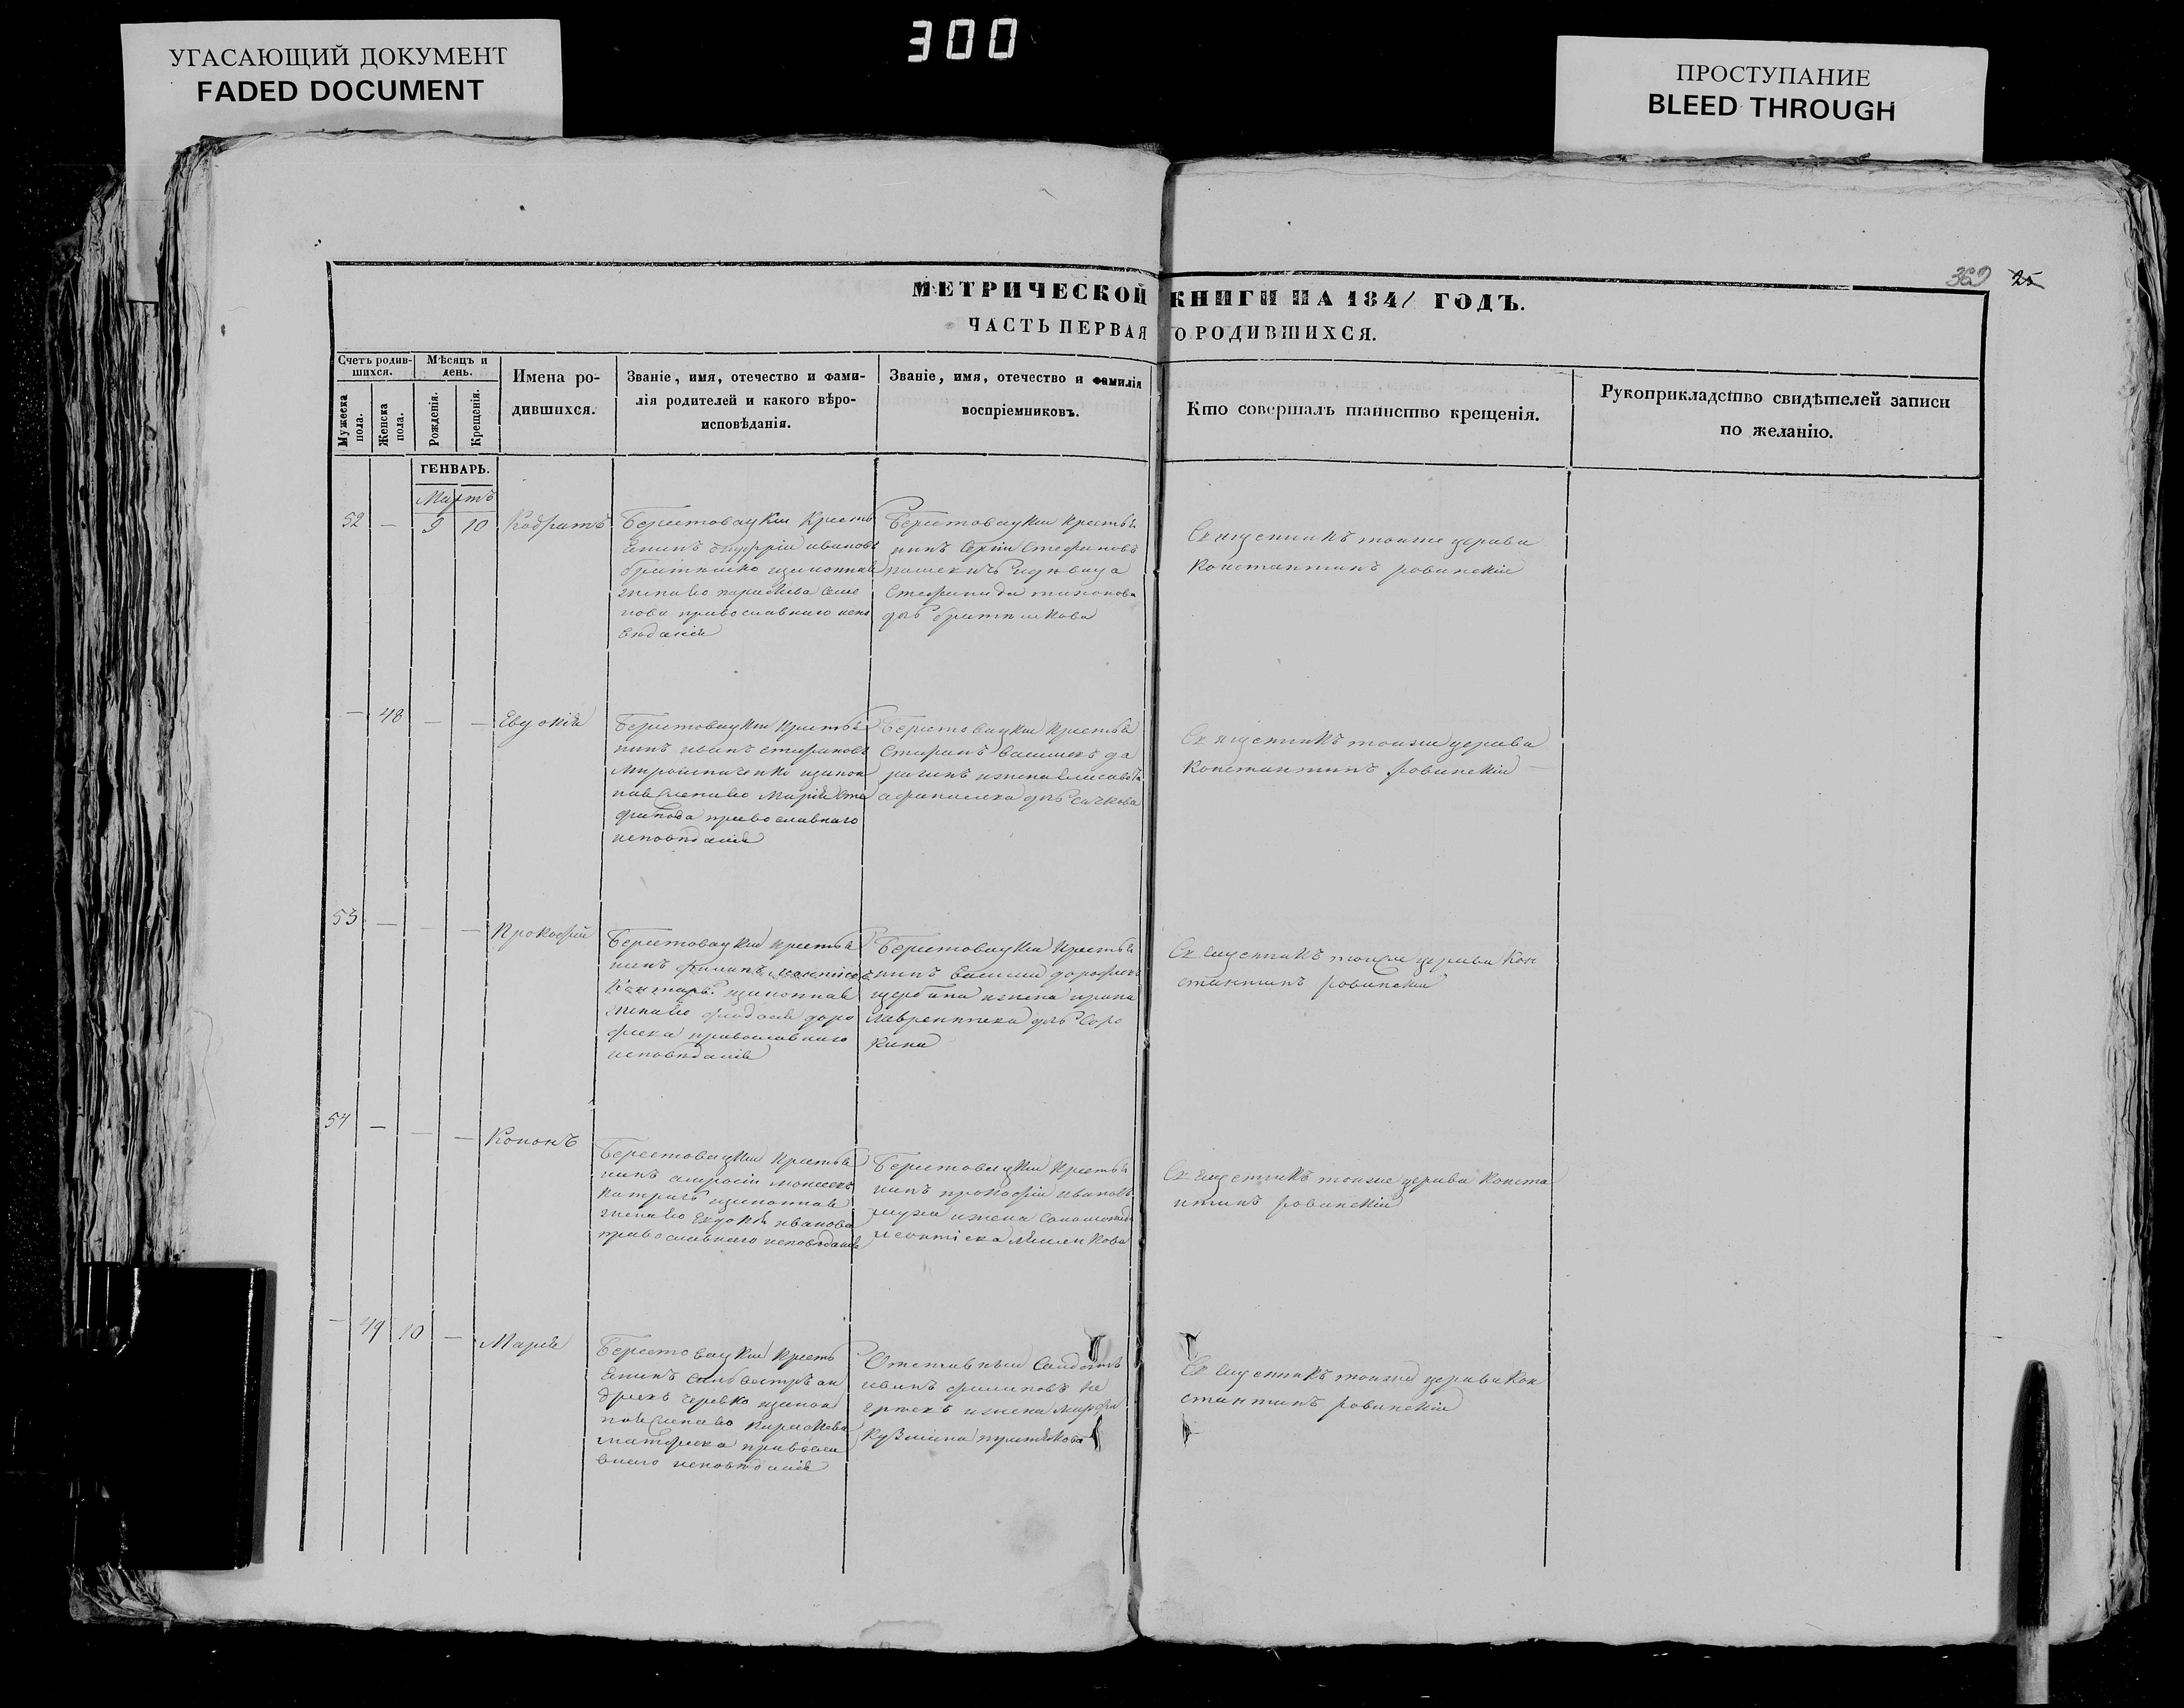 300
УГАСАЮЩИЙ ДОКУМЕНТ
FADED DOCUMENT
ПРОСТУПАНИЕ
BLEED THROUGH
369 25
МЕТРИЧЕСКОЙ КНИГИ НА 1841 ГОДЪ.
ЧАСТЬ ПЕРВАЯ О РОДИВШИХСЯ.
Счетъ родив-
шихся.
Мужеска пола.
Женска пола.
Мѣсяцъ и
день.
Рожденія.
Крещенія.
Имена ро-
дившихся.
Званіе, имя, отечество и фами-
лія родителей и какого вѣро-
исповѣданія.
Званіе, имя, отечество и фамилія
воспріемниковъ.
Кто совершалъ таинство крещенія.
Рукоприкладство свидѣтелей записи
по желанію.
ГЕНВАРЬ.
Мартъ
52 — 9 10 Кодратъ
Берестовацкій кресть
янинъ онуфрій ивановъ
законная
жена его параскева семе
нова православнаго испо
вѣданія
Берестовацкій крестья
нинъ Стефановъ
Стефанида
дочь
Священникъ тоижe церкви
Константинъ ровинскій
— 48 — — Евдокія
Берестовацкій крестья
нинъ иванъ стефановъ
Мирошниченко изакон
ная жена его Марія Сте
фанова православнаго
исповѣданія
Берестовацкій крестья
Стефанъ
ижена елисавета
дочь сичкова
Священникъ тоиже церкви
Константинъ ровинскій —
53 — — — Прокофій
Берестовацкій крестья
нинъ филипъ
изаконная
жена его феодосія доро
феева православнаго
исповѣданія
Берестовацкій крестья
нинъ василій дорофеевъ
щербина ижена ирина
Лаврентиева дочь Соро
кина
Священникъ тоиже церкви Кон
стантинъ ровинскій
54 — — — Кононъ
Берестовацкій крестья
нинъ моисеевъ
изаконная
жена его Евдокія иванова
православнаго исповѣданія
Берестовацкій крестья
нинъ прокофій ивановъ
муха ижена Соломонія
леонтіева
Священникъ тоиже церкви Конста
нтинъ ровинскій
— 49 10 — Марія
Берестовацкій кресть
янинъ силвестръ ан
дреевъ черевко изакон
ная жена его параскева
матфеева правосла
внаго исповѣданія
Отставный Солдатъ
иванъ филиповъ
ижена Марфа
Кузмина
Священникъ тоиже церкви Кон
стантинъ ровинскій